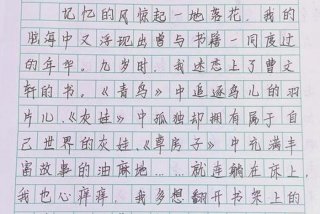 记忆的风惊起一地落花，我的
脑海中又浮现出曾与书籍一同度过
的年华。九岁时，我迷恋上了曹文
轩的书。《青鸟》中追逐鸟儿的羽
片儿、《灰娃》中孤独却拥有属于自
己世界的灰娃、《草房子》中充满丰
富故事的油麻地……就连躺在床上，
我也心痒痒，我多想翻开书架上的